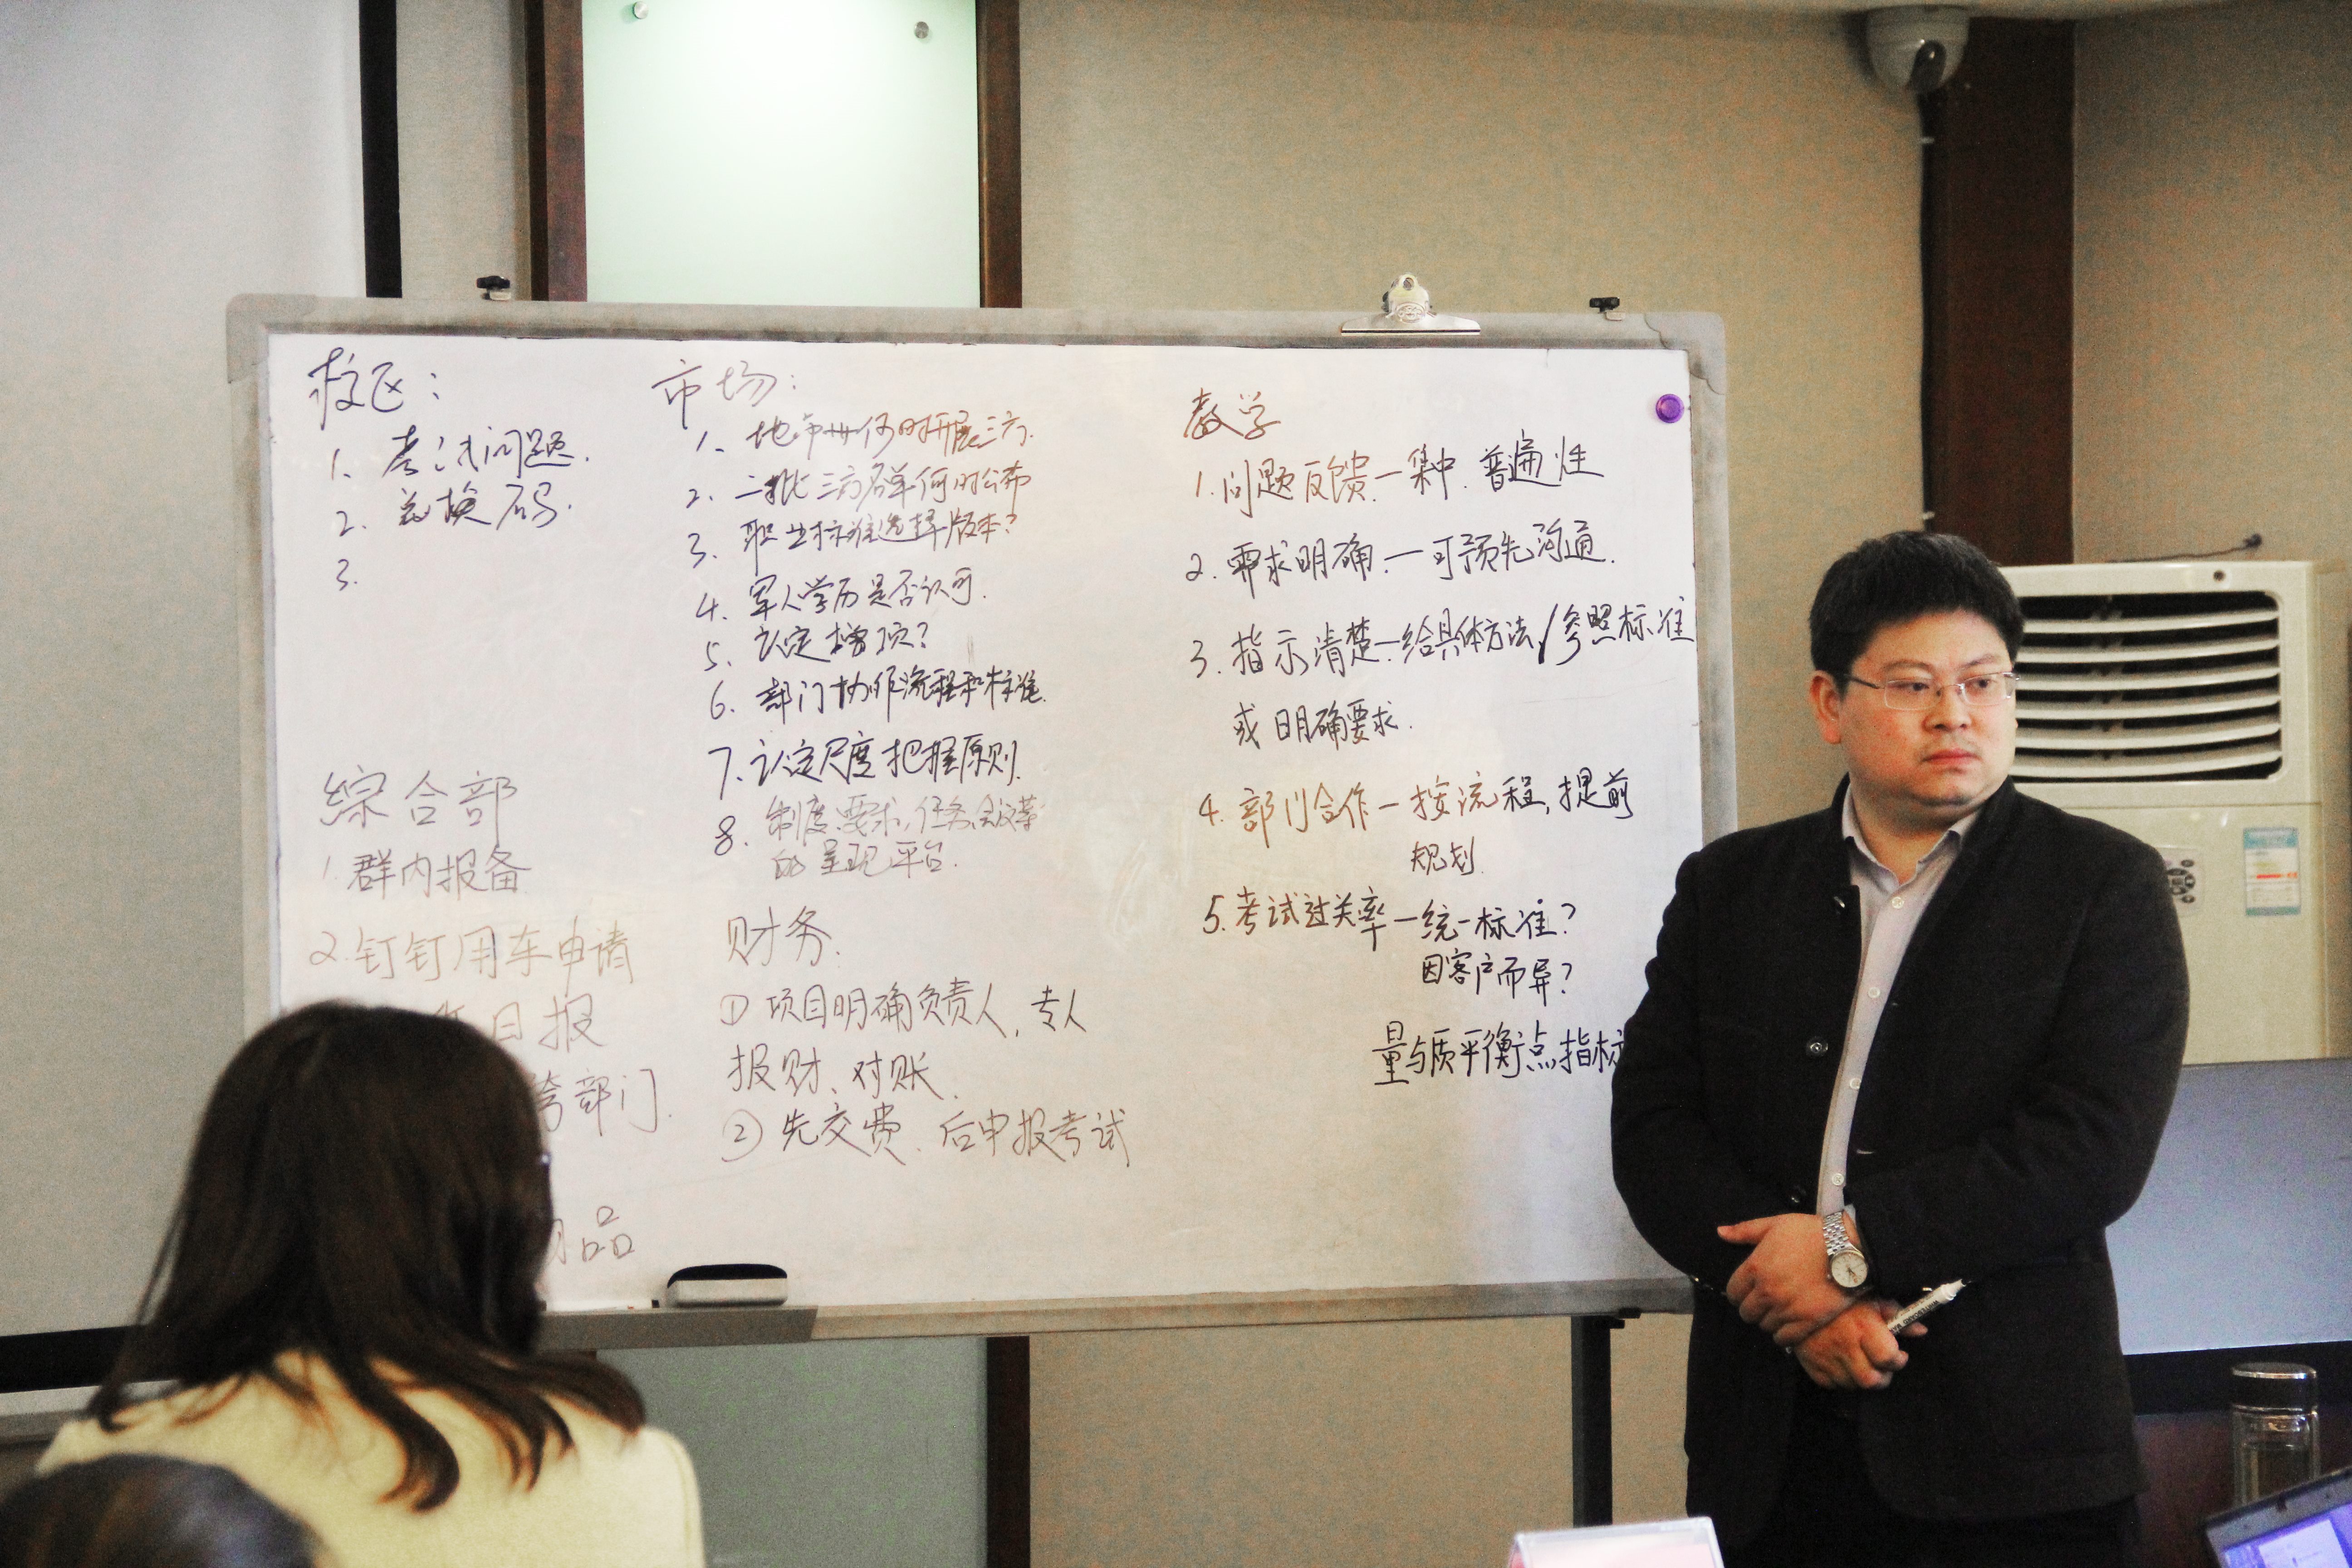 校区：
1. 考试问题.
2. 兑换码.
3.
综合部
1. 群内报备
2. 钉钉用车申请
日报
跨部门.
品
市场：
1. 地市州何时开展三方.
2. 二批三方名单何时公布
3. 职业标准选择版本?
4. 军人学历是否认可.
5. 认定增项?
6. 部门协作流程和标准.
7. 认定尺度把握原则.
8. 制度、要求、任务、会议等
的呈现平台.
财务.
① 项目明确负责人, 专人
报财、对账.
② 先交费. 后申报考试
教学
1. 问题反馈.一集中. 普遍性
2. 需求明确.一可预先沟通.
3. 指示清楚.一给具体方法/参照标准
或明确要求.
4. 部门合作一按流程, 提前
规划.
5. 考试过关率一统一标准?
因客户而异?
量与质平衡点指标